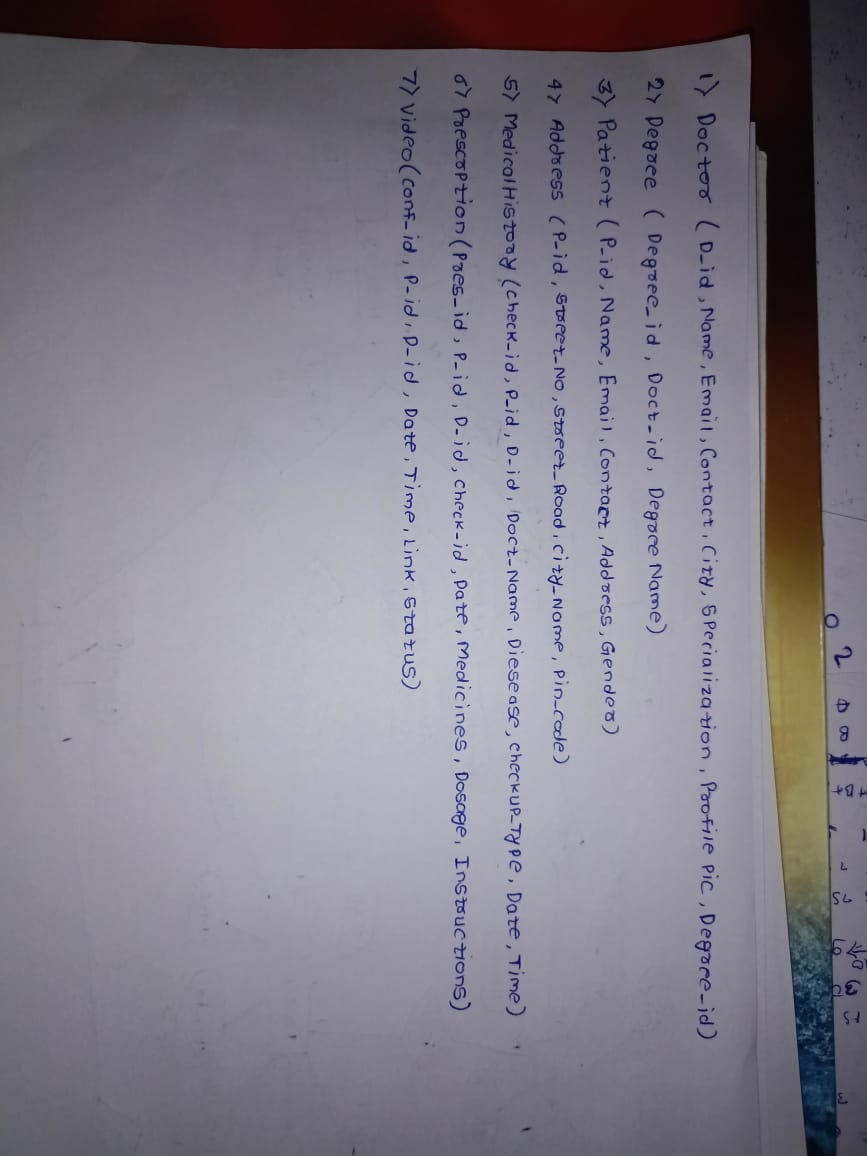 1) Doctor ( D_id, Name, Email, Contact, City, Specialization, Profile Pic, Degree_id)
2) Degree ( Degree_id, Doct_id, Degree Name)
3) Patient ( P_id, Name, Email, Contact, Address, Gender)
4) Address ( P_id, Street_No, Street_Road, City_Name, Pin_code)
5) Medical History (Check_id, P_id, D_id, Doct_Name, Diesease, Checkup_Type, Date, Time)
6) Prescrption (Pres_id, P_id, D_id, Check_id, Date, Medicines, Dosage, Instructions)
7) Video (Conf_id, P_id, D_id, Date, Time, Link, Status)